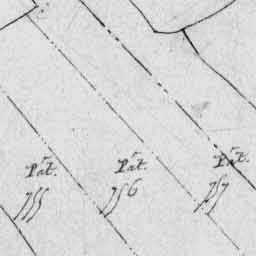 Pāt.
755
Pāt.
756
Pāt.
757